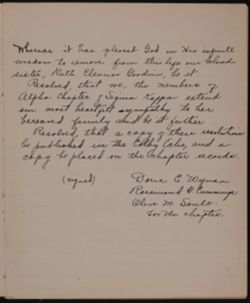 Whereas it has pleased God in His infinite
wisdom to remove from this life our beloved
sister, Ruth Eleanor Goodwin, be it
Resolved, that we, the members of
Alpha Chapter of Sigma Kappa extend
our most heartfelt sympathy to her
bereaved family and be it further
Resolved, that a copy of these resolutions
be published in the Colby Echo, and a
copy be placed on the chapter records.
(signed)
Doris E. Wyman
Rosamond H. Cummings
Olive M. Soule
For the chapter.